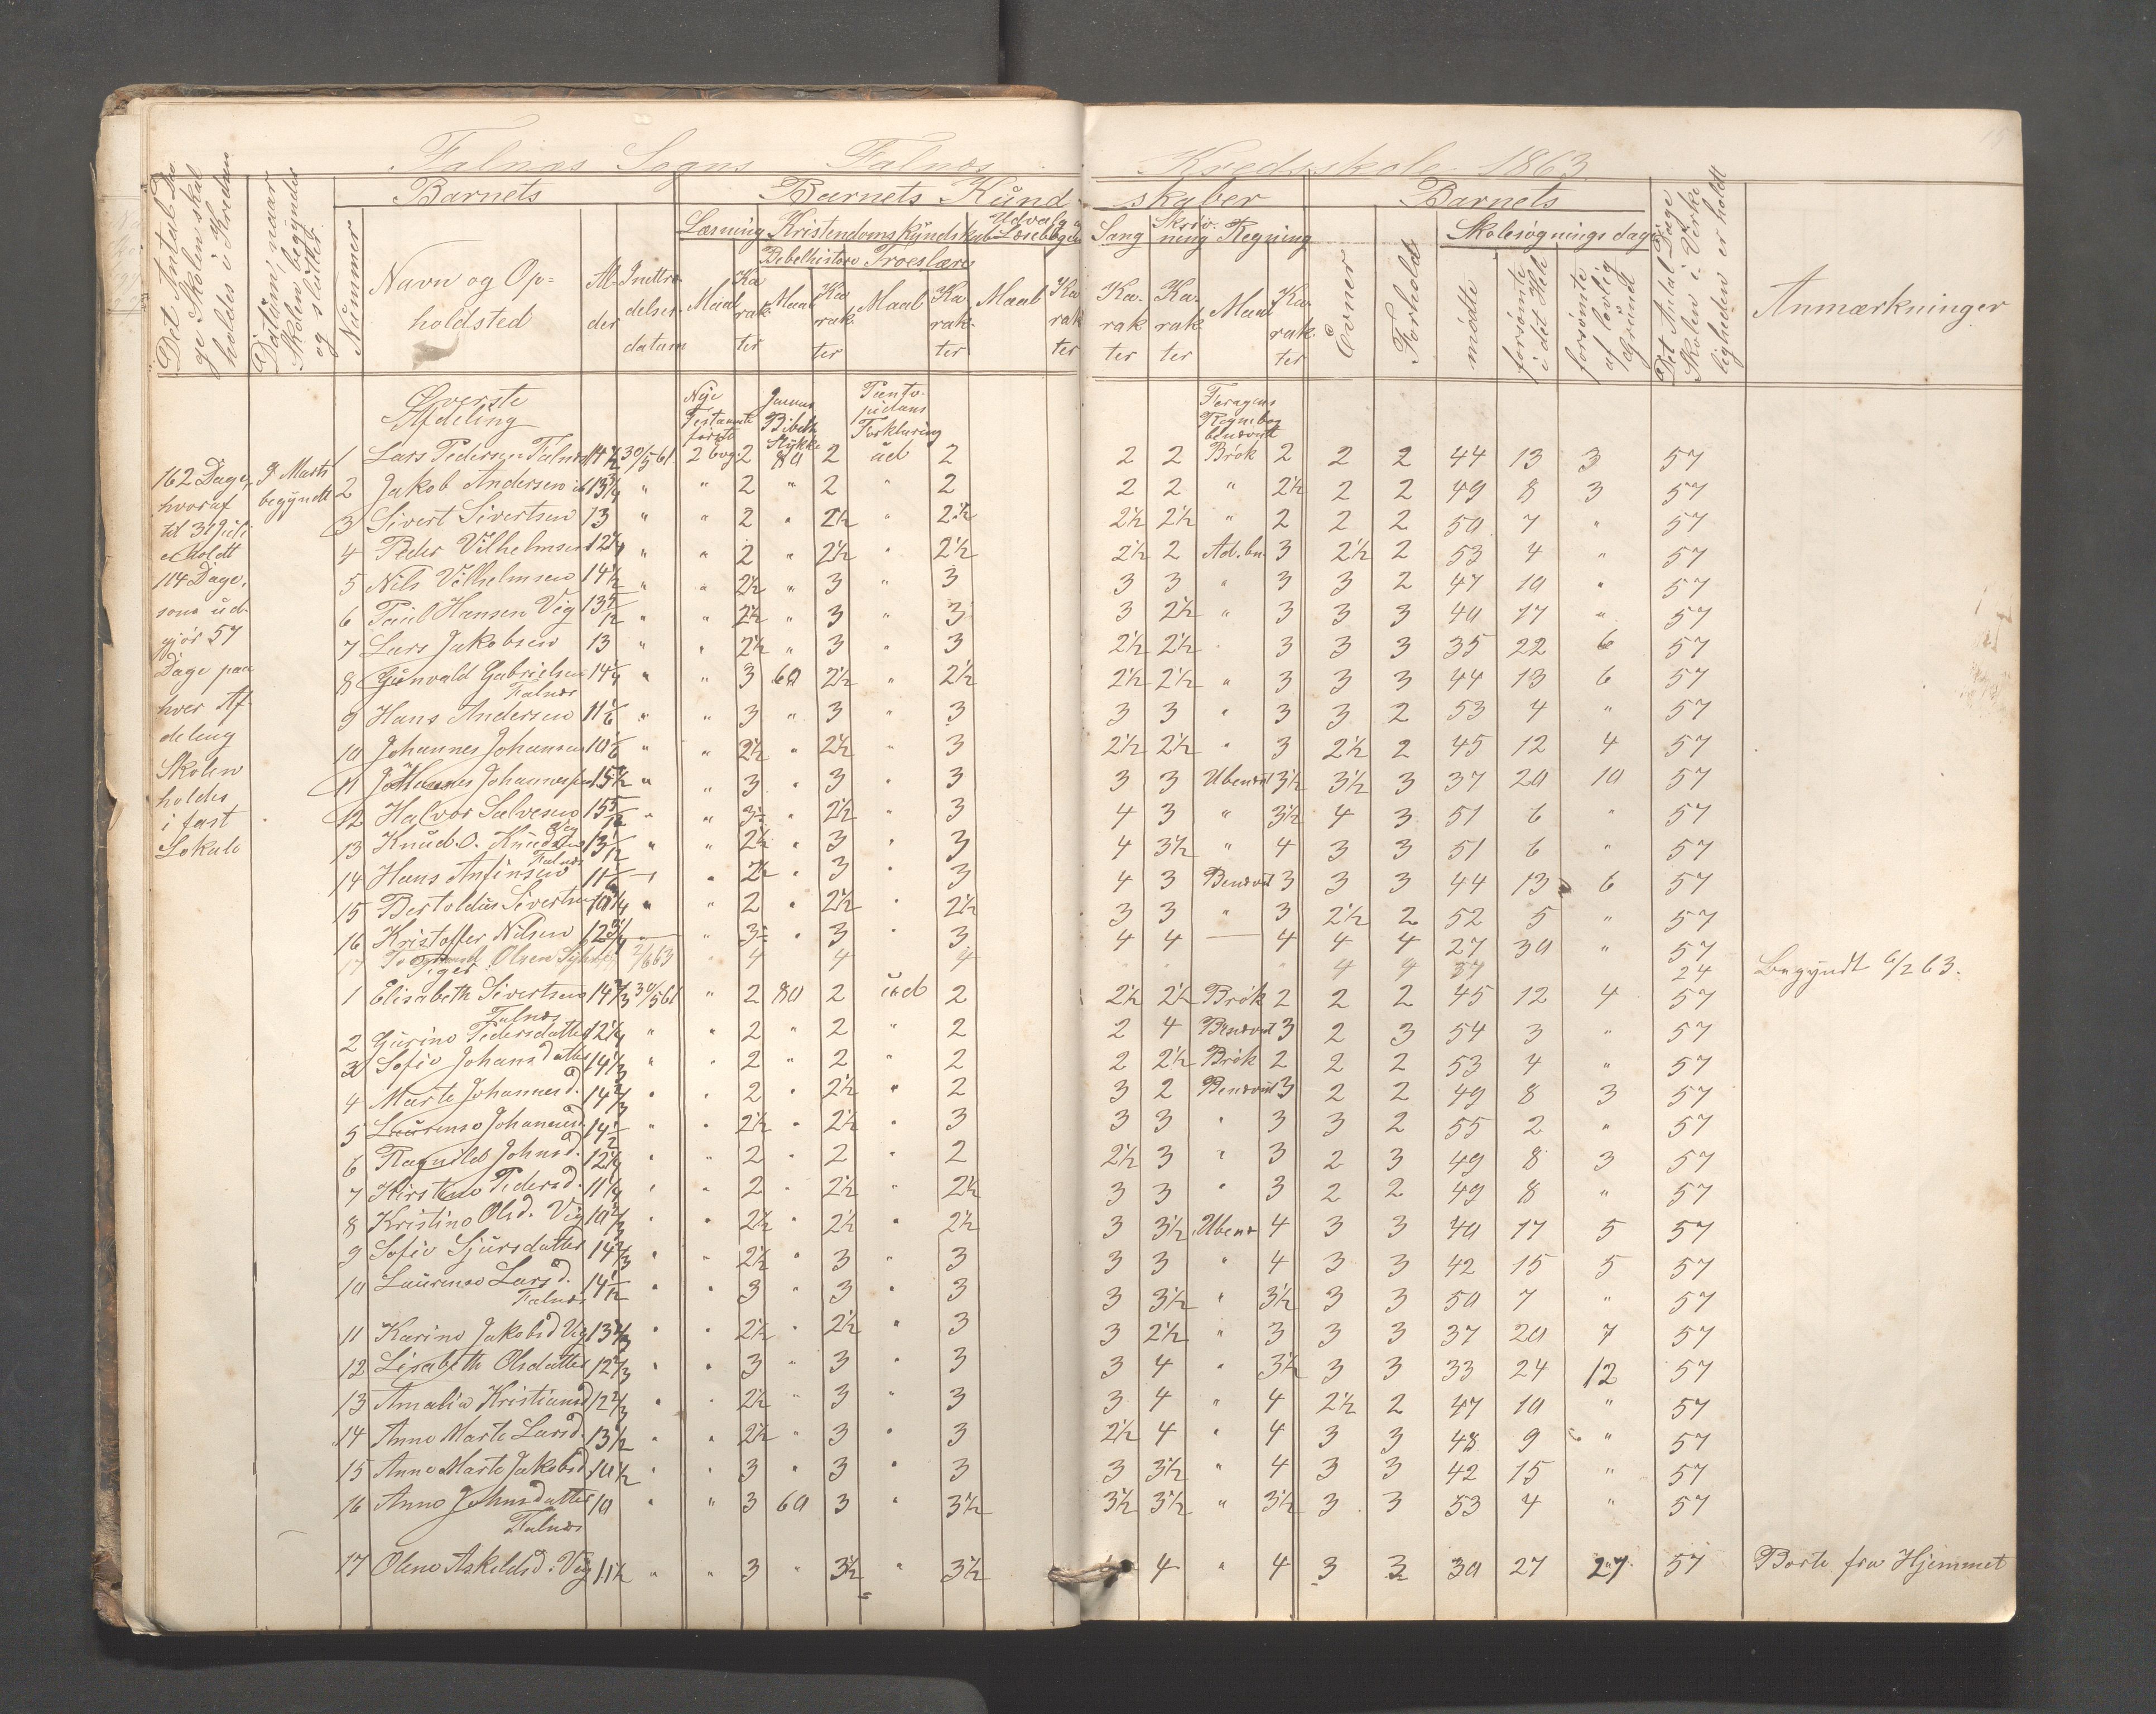 Falnæs Sogns Falnæs Kredsskole 1863
Det Antal Dage Skolen skal holdes i Kredsen
Datum, naar Skolen begyndes og sluttes
Barnets
Nummer
Navn og Opholdsted
Alder
Indtrædelsesdatum
Barnets Kundskaber
Læsning Kristendomskundskab Udvalg Læsebogen
Bibelhistorie Troeslære
Maal Karakter Maal Karakter Maal Karakter Maal Karakter
Sang Skrivning Regning
Karakter Karakter Maal Karakter
Barnets
Evner Forhold
Skolesøgningsdage
mødte
forsømte i det Hele
forsømte af lovlig Grund
Det Antal Dage Skolen i Virkeligheden er holdt
Anmærkninger
Øverste Afdeling
Nye Testamente første 2 bog.
Jensens Bibelh. Stykke
Pontoppidans Forklaring
Regnebog benævnt
162 Dage, hvoraf til 31 Juli er holdt 114 Dage, som udgjør 57 Dage paa hver Afdeling
Skolen holdes i fast Lokale
9 Marts begyndt
1 Lars Pedersen Falnæs 14 1/2 30/5 61 2 80 2 ud 2 2 2 Brøk 2 2 2 44 13 3 57
2 Jakob Andersen ib 13 3/4 " " 2 " 2 " 2 2 2 " 2 1/2 2 2 49 8 3 57
3 Sivert Sivertsen 13 " " 2 " 2 1/2 " 2 1/2 2 1/2 2 1/2 " 2 2 2 50 7 " 57
4 Peder Vilhelmsen 12 1/4 " " 2 " 2 1/2 " 2 1/2 2 1/2 2 Ad. bn. 3 2 1/2 2 53 4 " 57
5 Nils Vilhelmsen 14 1/2 " " 2 1/2 " 3 " 3 3 3 " 3 3 2 47 10 " 57
6 Paul Hansen Vig 13 5/12 " " 2 1/2 " 3 " 3 3 2 1/2 " 3 3 3 40 17 " 57
7 Lars Jakobsen 13 " " 2 1/2 " 3 " 3 2 1/2 2 1/2 " 3 3 3 35 22 6 57
8 Gunvald Gabrielsen Falnæs 14 1/4 " " 3 60 2 1/2 " 2 1/2 2 1/2 2 1/2 " 3 3 3 44 13 6 57
9 Hans Andersen 11 1/6 " " 3 " 3 " 3 3 3 " 3 3 2 53 4 " 57
10 Johannes Johansen 10 1/6 " " 2 1/2 " 2 1/2 " 3 2 1/2 2 1/2 " 3 2 1/2 2 45 12 4 57
11 Johannes Johannessen 15 1/2 " " 3 " 3 " 3 3 3 Ubenævnt 3 1/2 3 1/2 3 37 20 10 57
12 Halvor Salvesen Vig 15 5/12 " " 3 " 2 1/2 " 3 4 3 " 3 1/2 4 3 51 6 " 57
13 Knud. O. Knudsen Falnæs 13 1/12 " " 2 1/2 " 3 " 3 4 3 1/2 " 4 3 3 51 6 " 57
14 Hans Anfinsen 11 1/6 " " 2 1/2 " 3 " 3 4 3 Benævnt 3 3 3 44 13 6 57
15 Bertoldus Sivertsen 10 1/4 " " 2 " 2 1/2 " 2 1/2 3 3 " 3 2 1/2 2 52 5 " 57
16 Kristoffer Nilsen 12 3/4 " 3 " 3 " 3 4 4 — 4 4 4 27 30 " 57
17 Olsen 2/6 63 " 4 4 4 4 4 24 Begyndt 6/2 63.
Piger
1 Elisabeth Sivertsen Falnæs 14 2/3 30/5 61 " 2 80 2 ud 2 2 1/2 2 1/2 Brøk 2 2 2 45 12 4 57
2 Gurine Pedersdatter 12 1/4 " " 2 " 2 " 2 2 4 Benævnt 3 2 3 54 3 " 57
3 Sofie Johansdatter 14 1/3 " " 2 " 2 " 2 2 2 1/2 Brøk 2 2 2 53 4 " 57
4 Marte Johannesd. 14 2/3 " " 2 " 2 1/2 " 2 3 2 Benævnt 3 2 2 49 8 3 57
5 Laurense Johannesd. 14 1/2 " " 2 1/2 " 2 1/2 " 3 3 3 " 3 3 2 55 2 " 57
6 Ragnild Johnsd. 12 1/4 " " 2 " 2 " 2 2 1/2 3 " 3 2 3 49 8 3 57
7 Kirstine Pedersd. 11 1/4 " " 2 " 2 1/2 " 2 1/2 3 3 " 3 2 2 49 8 " 57
8 Kristine Olsd. Vig 10 2/3 " " 2 1/2 " 2 1/2 " 2 1/2 3 3 1/2 Ubenæ 4 3 3 40 17 5 57
9 Sofie Sjursdatter 14 2/3 " " 2 1/2 " 3 " 3 3 3 " 4 3 3 42 15 5 57
10 Laurense Larsd. Falnæs 14 1/12 " " 3 " 3 " 3 3 3 1/2 " 3 1/2 3 3 50 7 " 57
11 Karine Jakobsd Vig 13 2/3 " " 2 1/2 " 2 1/2 " 3 3 2 1/2 " 3 3 3 37 20 7 57
12 Lisabeth Olsdatter 12 2/3 " " 3 " 3 " 3 3 4 " 3 1/2 3 3 33 24 12 57
13 Amalia Kristiansd 12 2/3 " " 2 1/2 " 3 " 3 3 4 " 4 2 1/2 2 47 10 " 57
14 Anne Marte Larsd. 13 1/2 " " 2 1/2 " 3 " 3 2 1/2 4 " 4 3 3 48 9 " 57
15 Anne Marte Jakobsd 10 1/2 " " 3 " 3 " 3 3 3 1/2 " 4 3 3 42 15 " 57
16 Anne Johnsdatter Falnæs 10 " " 3 60 3 " 3 1/2 3 1/2 3 1/2 " 3 1/2 3 3 53 4 " 57
17 Olene Askildsd. Vig 11 1/2 " " 3 " 3 1/2 " 3 1/2 4 " 4 3 3 30 27 27 57 Borte fra Hjemmet